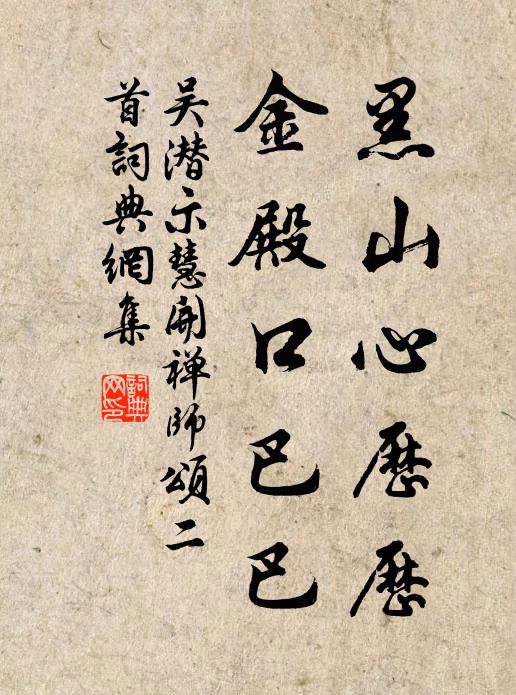 黑山心歷歷
金殿口巴巴
吴潜示慧開禅師頌二
首詞典網集
詞典网印